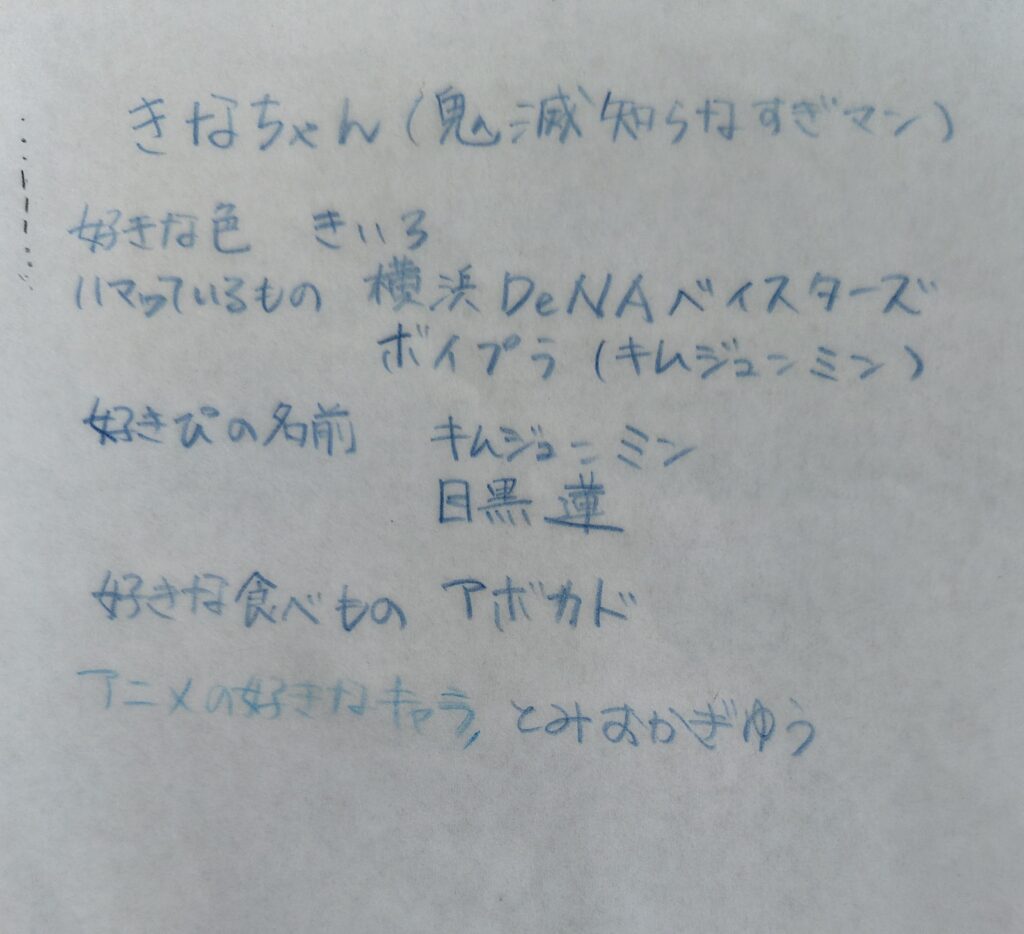 きなちゃん(鬼滅知らなすぎマン)
好きな色 きいろ
ハマっているもの 横浜DeNAベイスターズ
ボイプラ(キムジュンミン)
好きぴの名前 キムジュンミン
目黒蓮
好きな食べもの アボカド
アニメの好きなキャラ, とみおかぎゆう